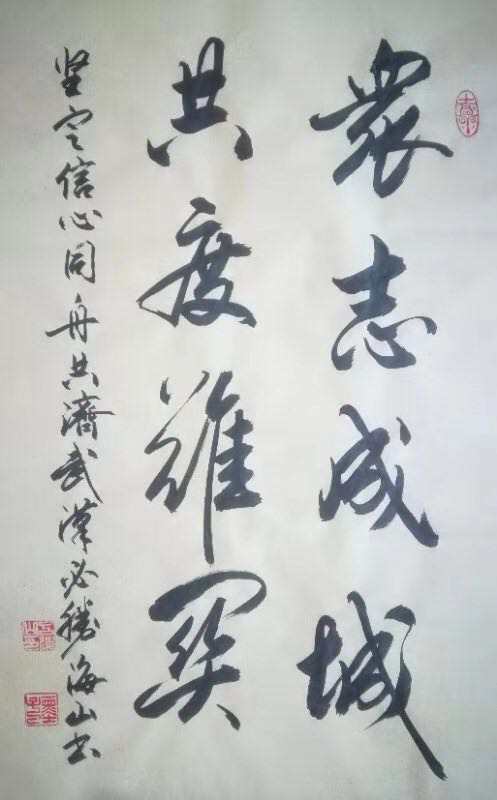 衆志成城
共度難関
坚定信心同舟共濟武漢必勝海山书